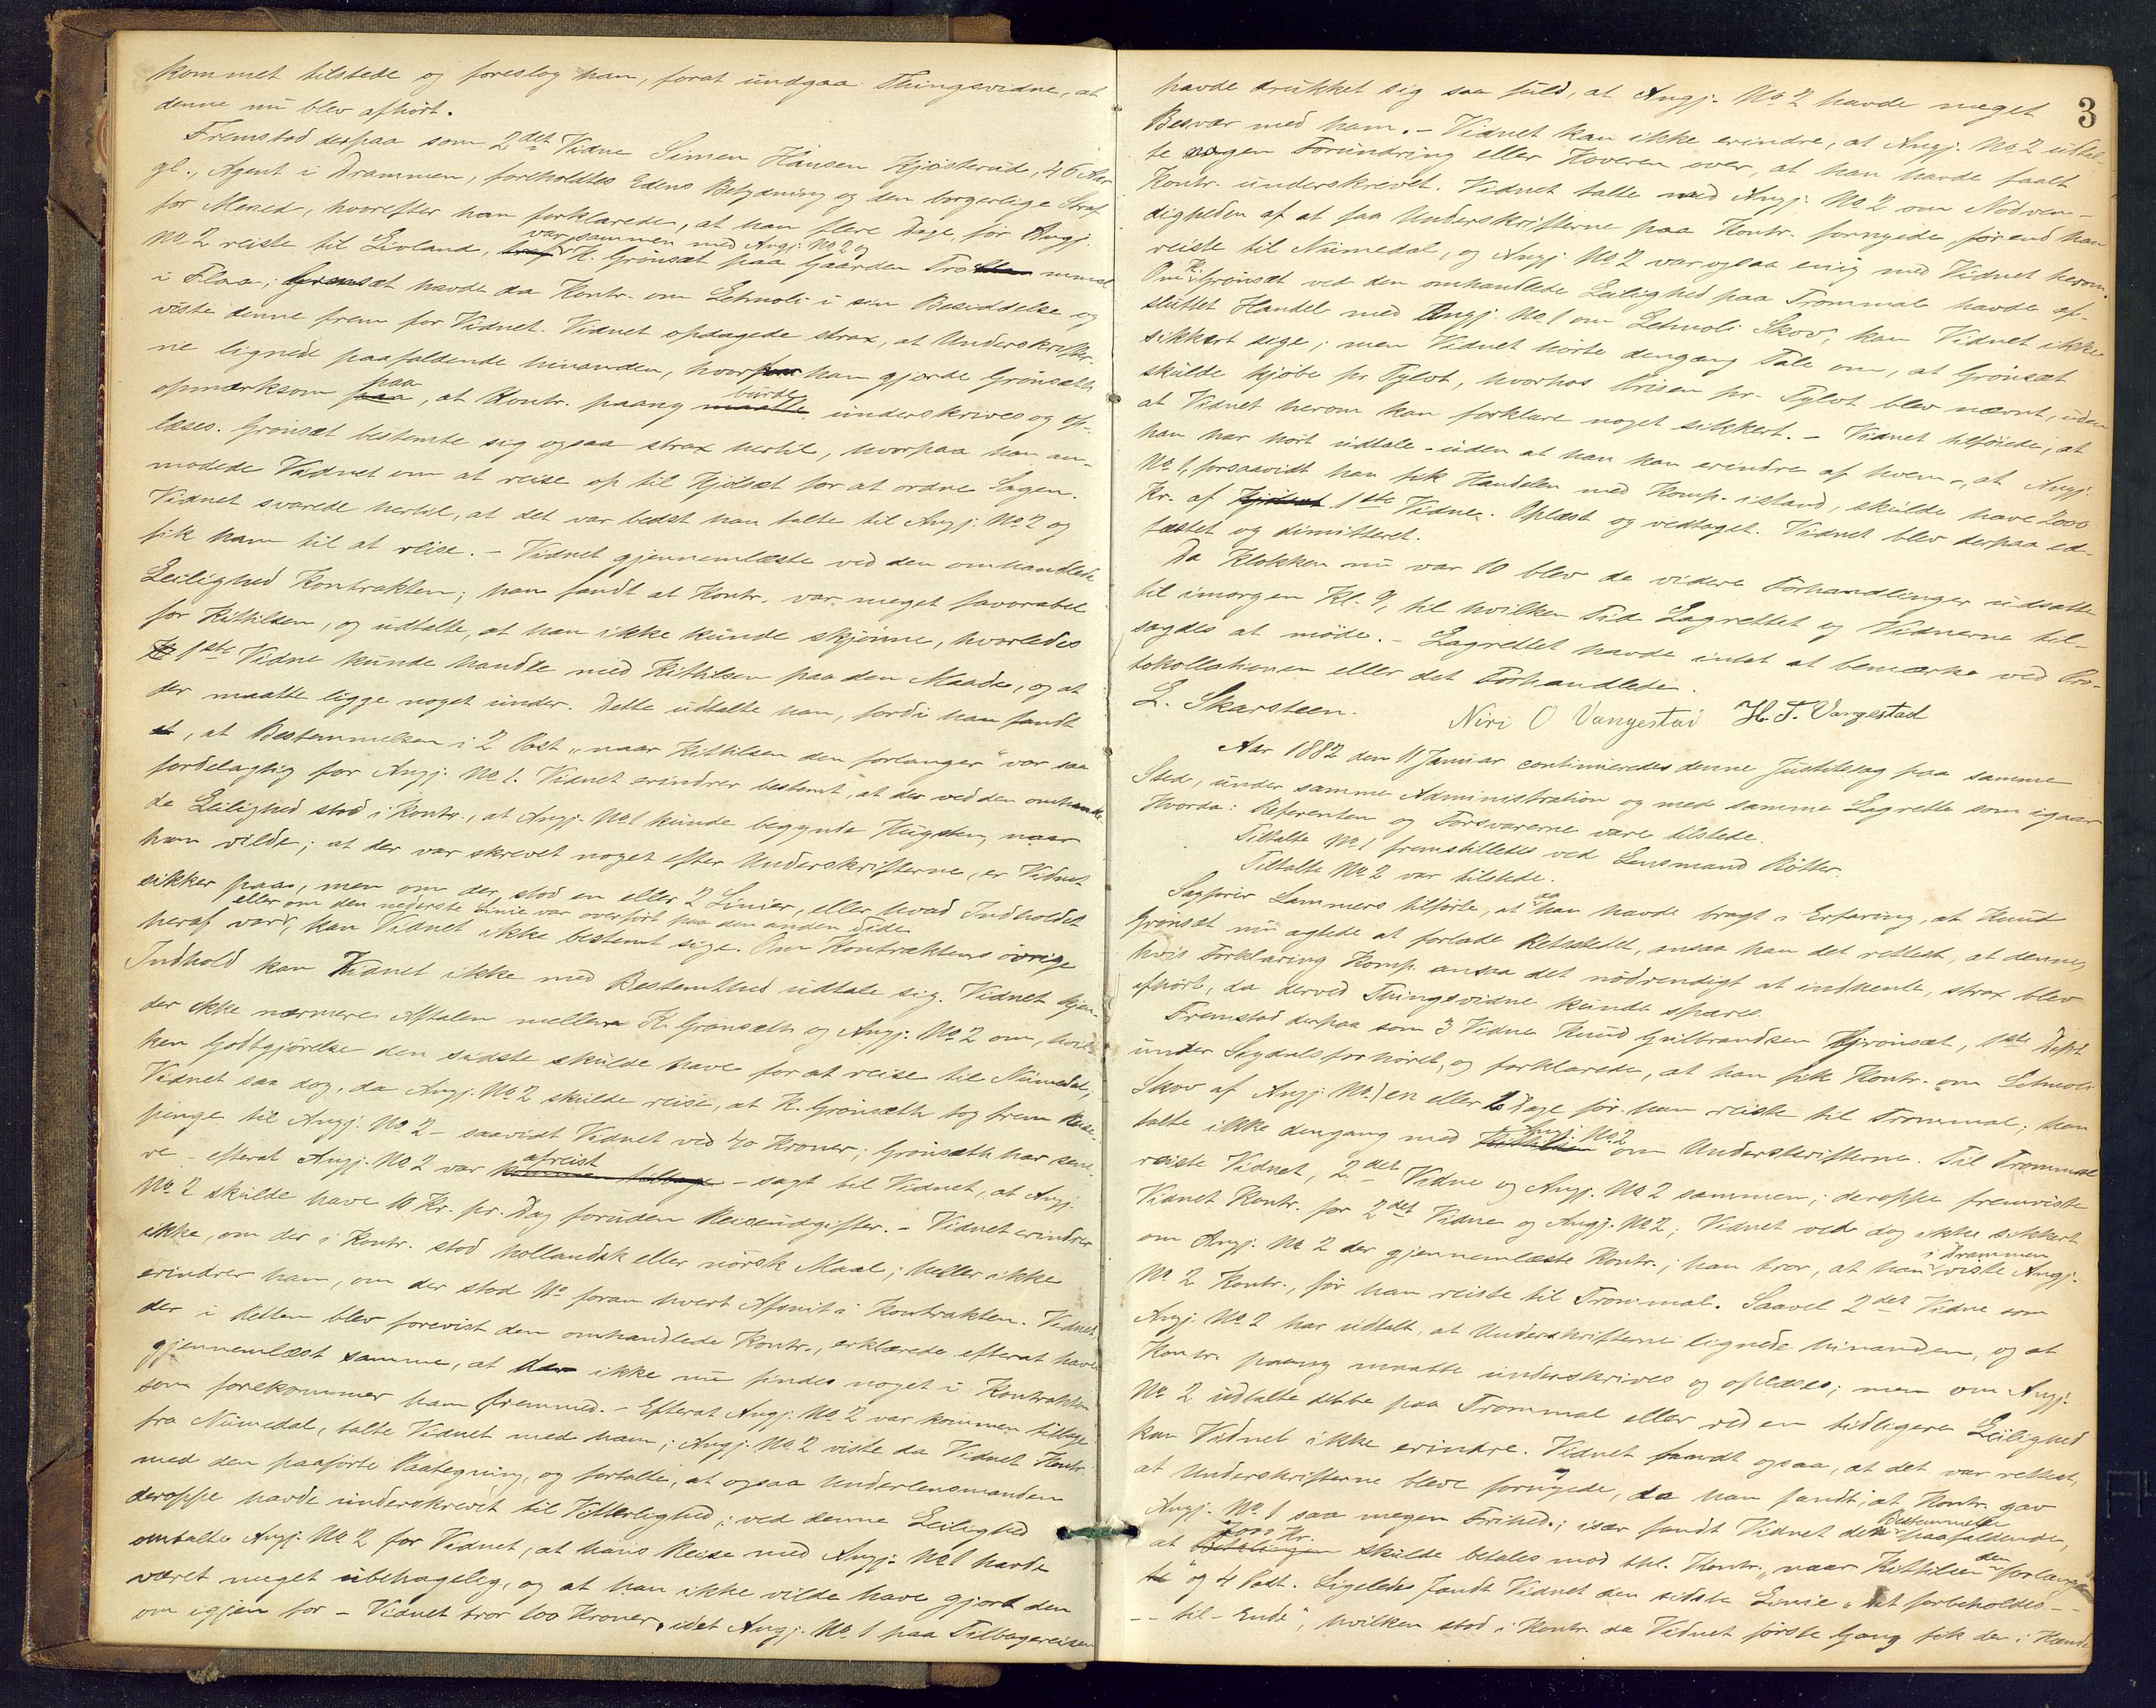 kommet tilstede og foreslog han, forat undgaa Thingsvidne, at
denne nu blev afhørt.
Fremstod derpaa som 2det Vidne Simen Hansen Kjøsterud, 46 Aar
gl., Agent i Drammen, foreholdtes Edens Betydning og den borgerlige Straf
for Mened, hvorefter han forklarede, at han flere Dage, før Angj.
var sammen med Angj. No 2 og
No 2 reiste til Livland, K. Grønsæt paa Gaarden Trommal
i Flaa; Grønsæt havde da Kontr. om Lehnoli i sin Besiddelse og
viste denne frem for Vidnet. Vidnet opdagede strax, at Underskrifter-
ne lignede paafaldende hinanden, hvorpaa han gjorde Grønsæth
opmærksom paa, at Kontr. paany burde underskrives og op-
læses. Grønsæt bestemte sig ogsaa strax hertil, hvorpaa han an-
modede Vidnet om at reise op til Kjølsæt for at ordne Sagen.
Vidnet svarede hertil, at det var bedst han talte til Angj. No 2 og
fik ham til at reise. - Vidnet gjennemlæste ved den omhandlede
Leilighed Kontrakten; han fandt at Kontr. var meget favorabel
for Kittilsen, og udtalte, at han ikke kunde skjønne, hvorledes
1ste Vidne kunde handle med Kittilsen paa den Maade, og at
der maatte ligge noget under. Dette udtalte han, fordi han fandt
at Bestemmelsen i 2 Post "naar Kittilsen den forlanger" var saa
fordelagtig for Angj. No 1. Vidnet erindrer bestemt, at der ved den omhandle-
de Leilighed stod i Kontr., at Angj. No 1 kunde begynde Hugsten, naar
han vilde; at der var skrevet noget efter Underskrifterne, er Vidnet
sikker paa, men om der stod en eller 2 Linier, eller hvad Indholdet
eller om den nederste Linie var overført paa den anden Side
heraf var, kan Vidnet ikke bestemt sige. Om Kontraktens øvrige
Indhold kan Vidnet ikke med Bestemthed udtale sig. Vidnet kjen-
der ikke nærmere Aftalen mellem K. Grønsæth og Angj. No 2 om, hvil-
ken Godtgjørelse den sidste skulde have for at reise til Numedal,
Vidnet saa dog, da Angj. No 2 skulde reise, at K. Grønsæth tog frem Reise-
penge til Angj. No 2 - saavidt Vidnet ved 40 Kroner; Grønsæth har sene-
re - efterat Angj. No 2 var afreist - sagt til Vidnet, at Angj.
No 2 skulde have 10 Kr. pr. Dag foruden Reiseudgifter. - Vidnet erindrer
ikke, om der i Kontr. stod hollandsk eller norsk Maal; heller ikke
erindrer han, om der stod No foran hvert Afsnit i Kontrakten. Vidnet,
der i Retten blev forevist den omhandlede Kontr., erklærede efterat have
gjennemlæst samme, at der ikke nu findes noget i Kontrakten
som forekommer ham fremmed. - Efterat Angj. No 2 var kommen tilbage
fra Numedal, talte Vidnet med ham; Angj. No 2 viste da Vidnet Kontr.
med den paaførte Paategning, og fortalte, at ogsaa Underlensmanden
deroppe havde underskrevet til Vitterlighed; ved denne Leilighed
omtalte Angj. No 2 for Vidnet, at hans Reise med Angj. No 1 havde
været meget ubehagelig, og at han ikke vilde have gjort den
om igjen for - Vidnet tror 100 Kroner, idet Angj. No 1 paa Tilbagereisen
3
havde drukket sig saa fuld, at Angj. No 2 havde meget
Besvær med ham. - Vidnet kan ikke erindre, at Angj. No 2 udtal-
te nogen Forundring eller Hoveren over, at han havde faaet
Kontr. underskrevet. Vidnet talte med Angj. No 2 om Nødven-
digheden af at faa Underskrifterne paa Kontr. fornyede, førend han
reiste til Numedal, og Angj. No 2 var ogsaa enig med Vidnet herom.
Om K. Grønsæt ved den omhandlede Leilighed paa Trommal havde af-
sluttet Handel med Angj. No 1 om Lehnoli Skov, kan Vidnet ikke
sikkert sige; men Vidnet hørte dengang Tale om, at Grønsæt
skulde kjøbe pr Tylvt, hvorhos Prisen pr. Tylvt blev nævnt, uden
at Vidnet herom kan forklare noget sikkert. - Vidnet tilføiede, at
han har hørt udtale - uden at han kan erindre af hvem -, at Angj.
No 1, forsaavidt han fik Handelen med Komp. istand, skulde have 2000
Kr. af 1ste Vidne. Oplæst og vedtaget. Vidnet blev derpaa ed-
fæstet og dimitteret.
Da Klokken nu var 10 blev de videre Forhandlinger udsatte
til imorgen Kl. 9, til hvilken Tid Lagrettet og Vidnerne til-
sagdes at møde. - Lagrettet havde intet at bemærke ved Pro-
tokollationen eller det Forhandlede.
L. Skarsteen. Niri O Vangestad H. T. Vangestad
Aar 1882 den 11 Januar continueredes denne Justitssag paa samme
Sted, under samme Administration og med samme Lagrette som igaar
Hvorda: Referenten og Forsvarerne vare tilstede.
Tiltalte No 1 fremstilledes ved Lensmand Røtter.
Tiltalte No 2 var tilstede.
Sagfører Lammers tilførte, at da han havde bragt i Erfaring, at Knud
Grønsæt nu agtede at forlade Retsstedet, ansaa han det rettest, at denne,
hvis Forklaring Komp. ansaa det nødvendigt at indhente, strax blev
afhørt, da derved Thingsvidne kunde spares.
Fremstod derpaa som 3 Vidne Knud Gulbrandsen Grønsæt, 1ste Dept
under Sigdals forhøret, og forklarede, at han fik Kontr. om Lehnoli
Skov af Angj. No 1 en eller 2 Dage før han reiste til Trommal; han
talte ikke dengang med Angj. No 2 om Underskrifterne. Til Trommal
reiste Vidnet, 2det Vidne og Angj. No 2 sammen; deroppe fremviste
Vidnet Kontr. for 2det Vidne og Angj. No 2; Vidnet ved dog ikke sikkert
om Angj. No 2 der gjennemlæste Kontr.; han tror, at han i Drammen viste Angj.
No 2 Kontr., før han reiste til Trommal. Saavel 2det Vidne som
Angj. No 2 har udtalt, at Underskrifterne lignede hinanden, og at
Kontr. paany maatte underskrives og oplæses; men om Angj.
No 2 udtalte dette paa Trommal eller ved en tidligere Leilighed
kan Vidnet ikke erindre. Vidnet fandt ogsaa, at det var rettest,
at Underskrifterne bleve fornyede, da han fandt, at Kontr. gav
Angj. No 1 saa megen Frihed; især fandt Vidnet den Bestemmelse paafaldende,
at 7000 Kr. skulde betales mod thl. Kontr. "naar Kittilsen den forlanger
" og 4 Post. Ligeledes fandt Vidnet den sidste Linie "det forbeholdes - -
- - til - Ende", hvilken stod i Kontr. da Vidnet første Gang fik den i Hænde